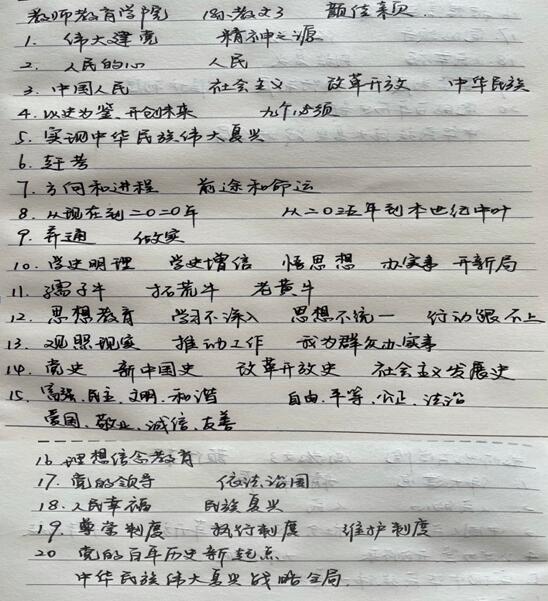 教师教育学院 教文3
1. 伟大建党 精神之源
2. 人民的心 人民
3. 中国人民 社会主义 改革开放 中华民族
4. 以史为鉴、开创未来 九个必须
5. 实现中华民族伟大复兴
6. 赶考
7. 方向和进程 前途和命运
8. 从现在到二〇二〇年 从二〇三五年到本世纪中叶
9. 弄通 做实
10. 学史明理 学史增信 悟思想 办实事 开新局
11. 孺子牛 拓荒牛 老黄牛
12. 思想教育 学习不深入 思想不统一 行动跟不上
13. 观照现实 推动工作 我为群众办实事
14. 党史 新中国史 改革开放史 社会主义发展史
15. 富强、民主、文明、和谐 自由、平等、公正、法治
爱国、敬业、诚信、友善
16 理想信念教育
17. 党的领导 依法治国
18. 人民幸福 民族复兴
19. 尊崇制度 执行制度 维护制度
20 党的百年历史新起点
中华民族伟大复兴战略全局